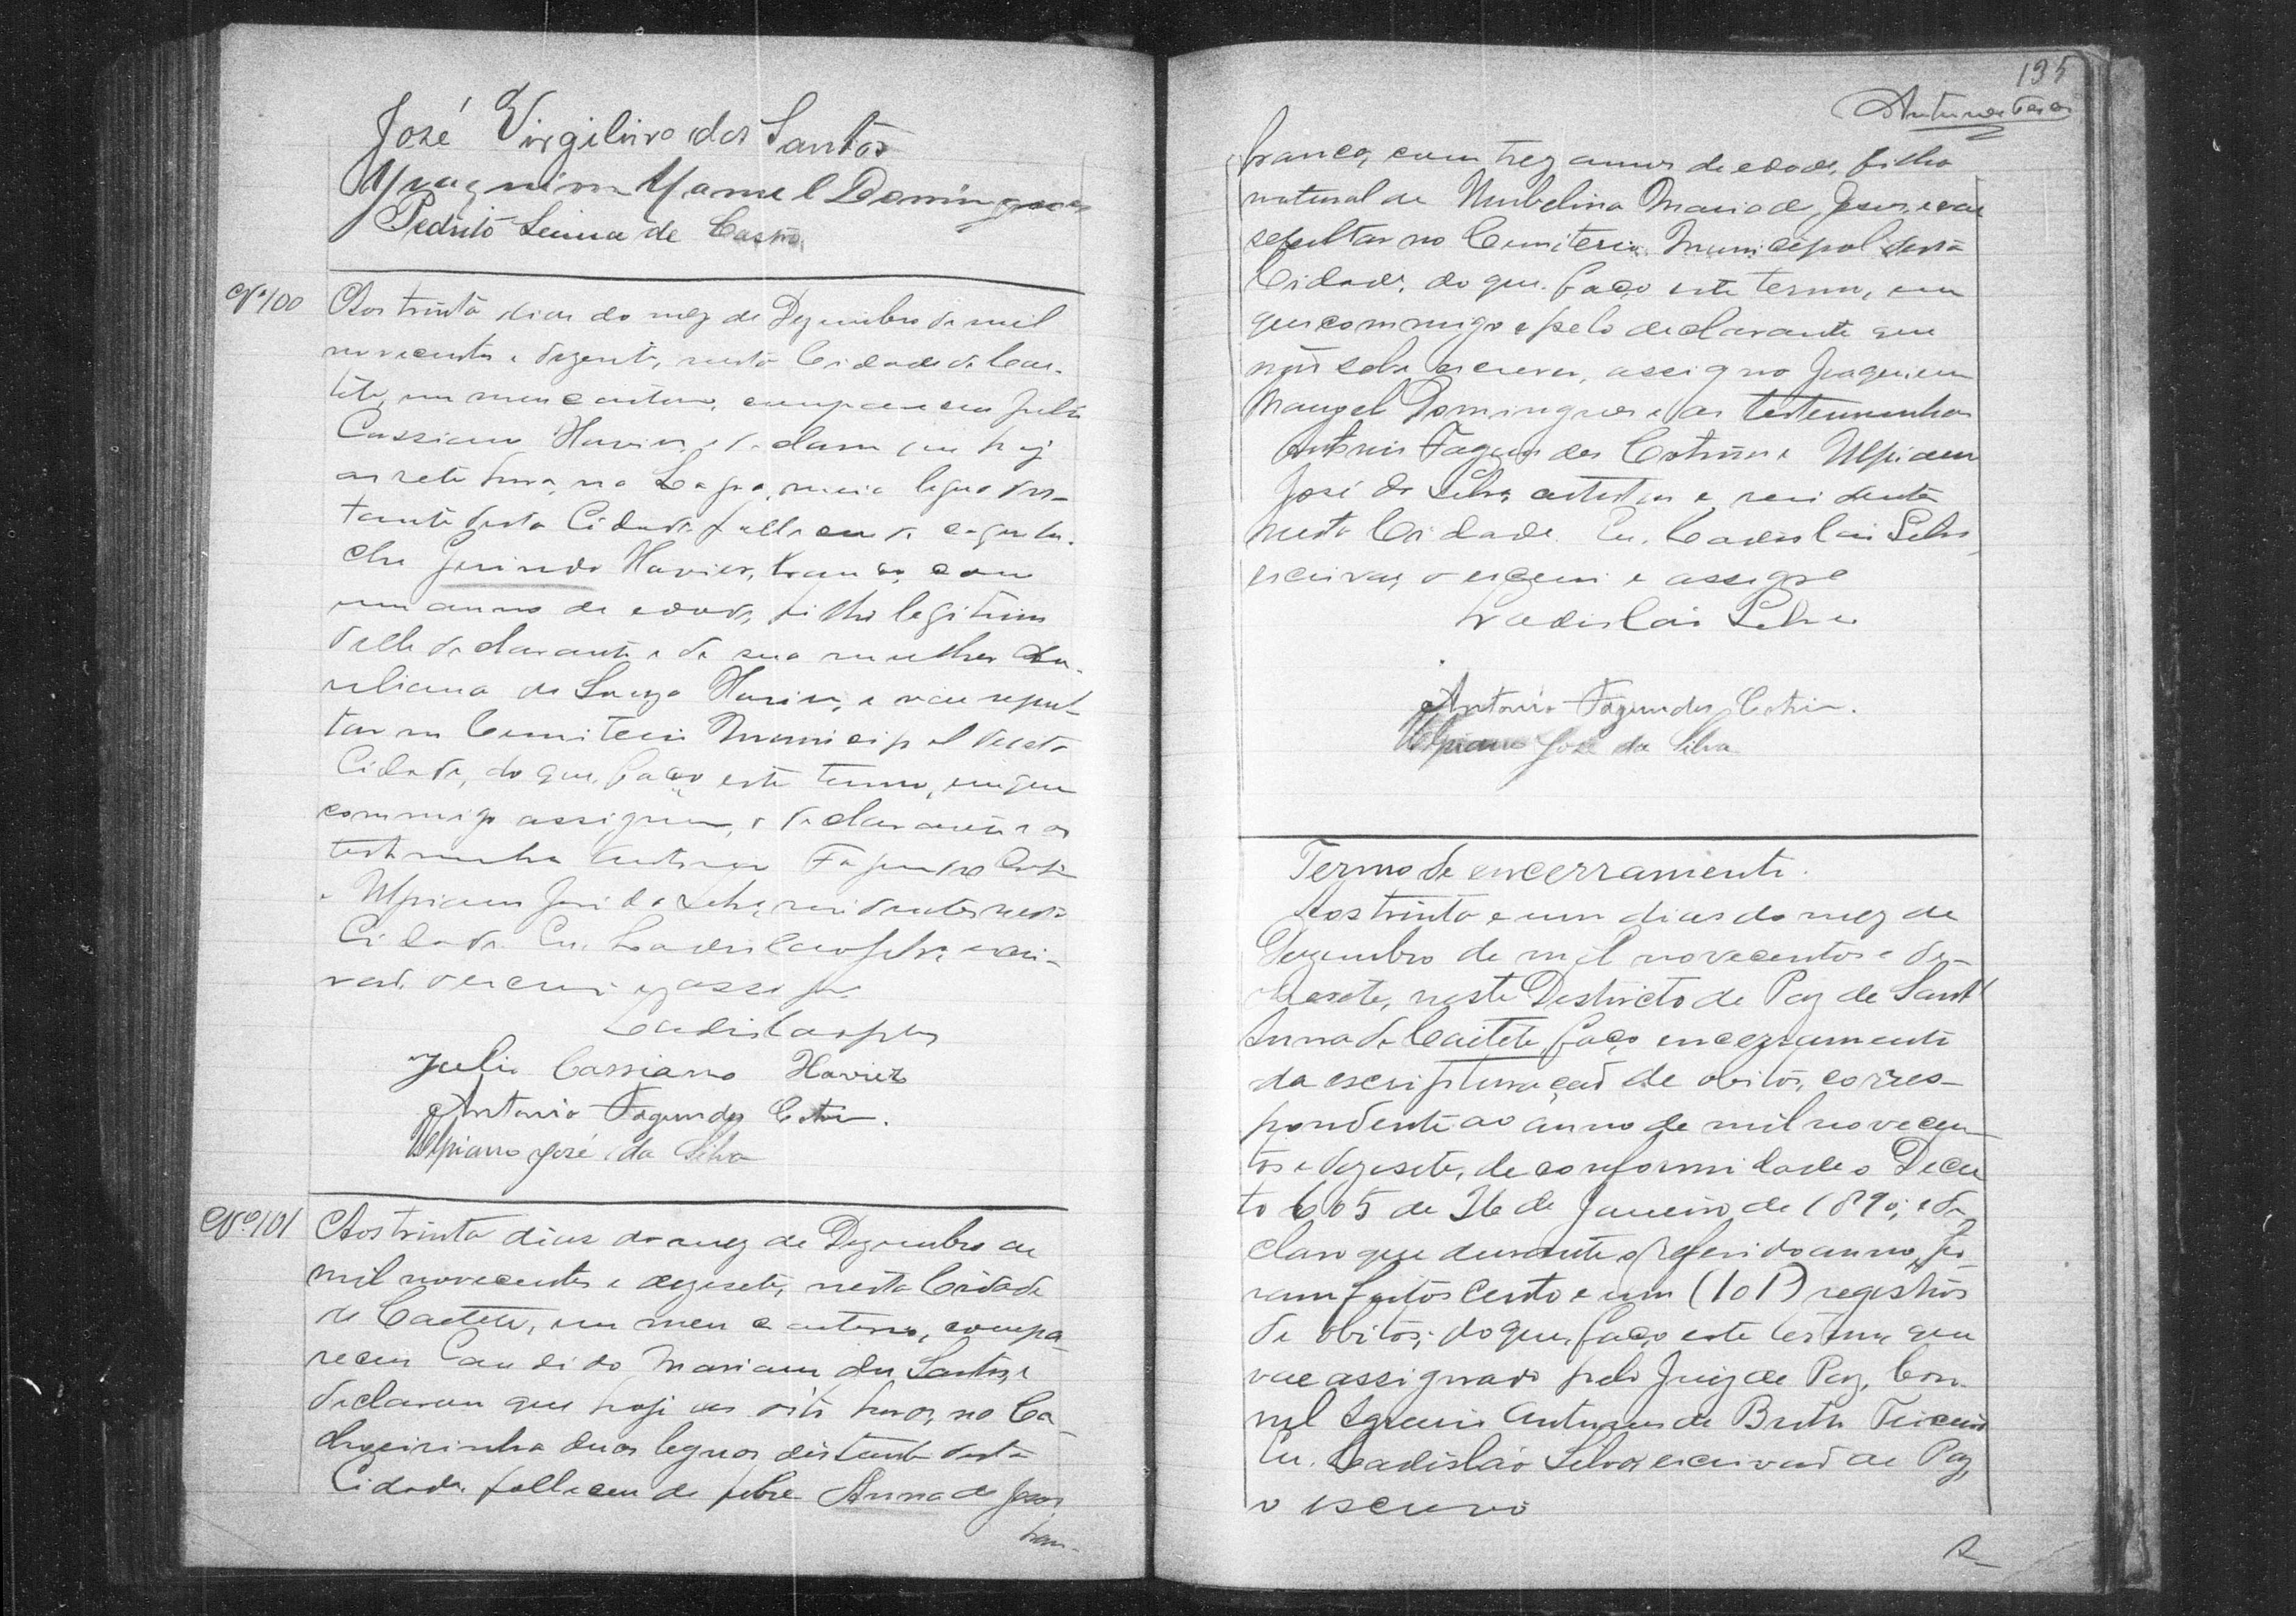 José Virgilino dos Santos
Manuel Domingues
Pedrito de Castro
Nº 100
Aos trinta dias do mez de Dezembro de mil
novecentos e dezesete, nesta Cidade de Cae-
tité, em meu cartorio, compareceu Julio
Cassiano Havier, e declarou que hoje
as sete horas, na Lagoa, meia legua dis-
tante desta Cidade falleceu de coquelu-
che Havier, branco, com
um anno de edade, filho legitimo
delle declarante e de sua mulher Au-
reliana de Souza Havier, e vae sepul-
tar no Cemiterio Municipal desta
Cidade, do que, faço este termo, em que
commigo assignam, o declarante e as
testemunhas Antonio Fagundes Cotrim
e Ulpiano José da Silva, residentes nesta
Cidade. Eu, Ladislao Silva, escri-
vão, o escrevi e assigno
Ladislao Silva
Julio Cassiano Havier
Antonio Fagundes Cotrim.
Ulpiano José da Silva
Nº 101
Aos trinta dias do mez de Dezembro de
mil novecentos e dezesete, nesta Cidade
de Caeteté, em meu cartorio, compa-
receu Candido Mariano dos Santos, e
declarou que hoje as oito horas, no Ca-
choeirinha duas leguas distante desta
Cidade, falleceu de febre Anna de Jesus,
bran-
195
branca, com trez annos de edade, filha
natural de Umbelina Maria de Jesus, e vae
sepultar no Cemiterio Municipal desta
Cidade, do que, faço este termo, em
que commigo e pelo declarante que
não sabe escrever, assigno Joaquim
Manoel Domingues e as testemunhas
Antonio Fagundes Cotrim e Ulpiano
José da Silva, artistas e residentes
nesta Cidade. Eu, Ladislao Silva,
escrivão, o escrevi e assigno
Ladislao Silva
Antonio Fagundes Cotrim.
Ulpiano José da Silva
Termo de encerramento.
Aos trinta e um dias do mez de
Dezembro de mil novecentos e de-
zesete, neste Destricto de Paz de Sant'
Anna de Caiteté, faço encerramento
da escripturação de obitos, corres-
pondente ao anno de mil novecen-
tos e dezesete, de conformidade o Decre
to 605 de 26 de Janeiro de 1890; e de-
claro que durante o referido anno, fo-
ram feitos cento e um (101) registros
de obitos; do que, faço este termo que
vae assignado pelo Juiz de Paz, Coro-
nel Antunes de Britto Teixeira
Eu, Ladislao Silva, escrivão de Paz,
o escrevo